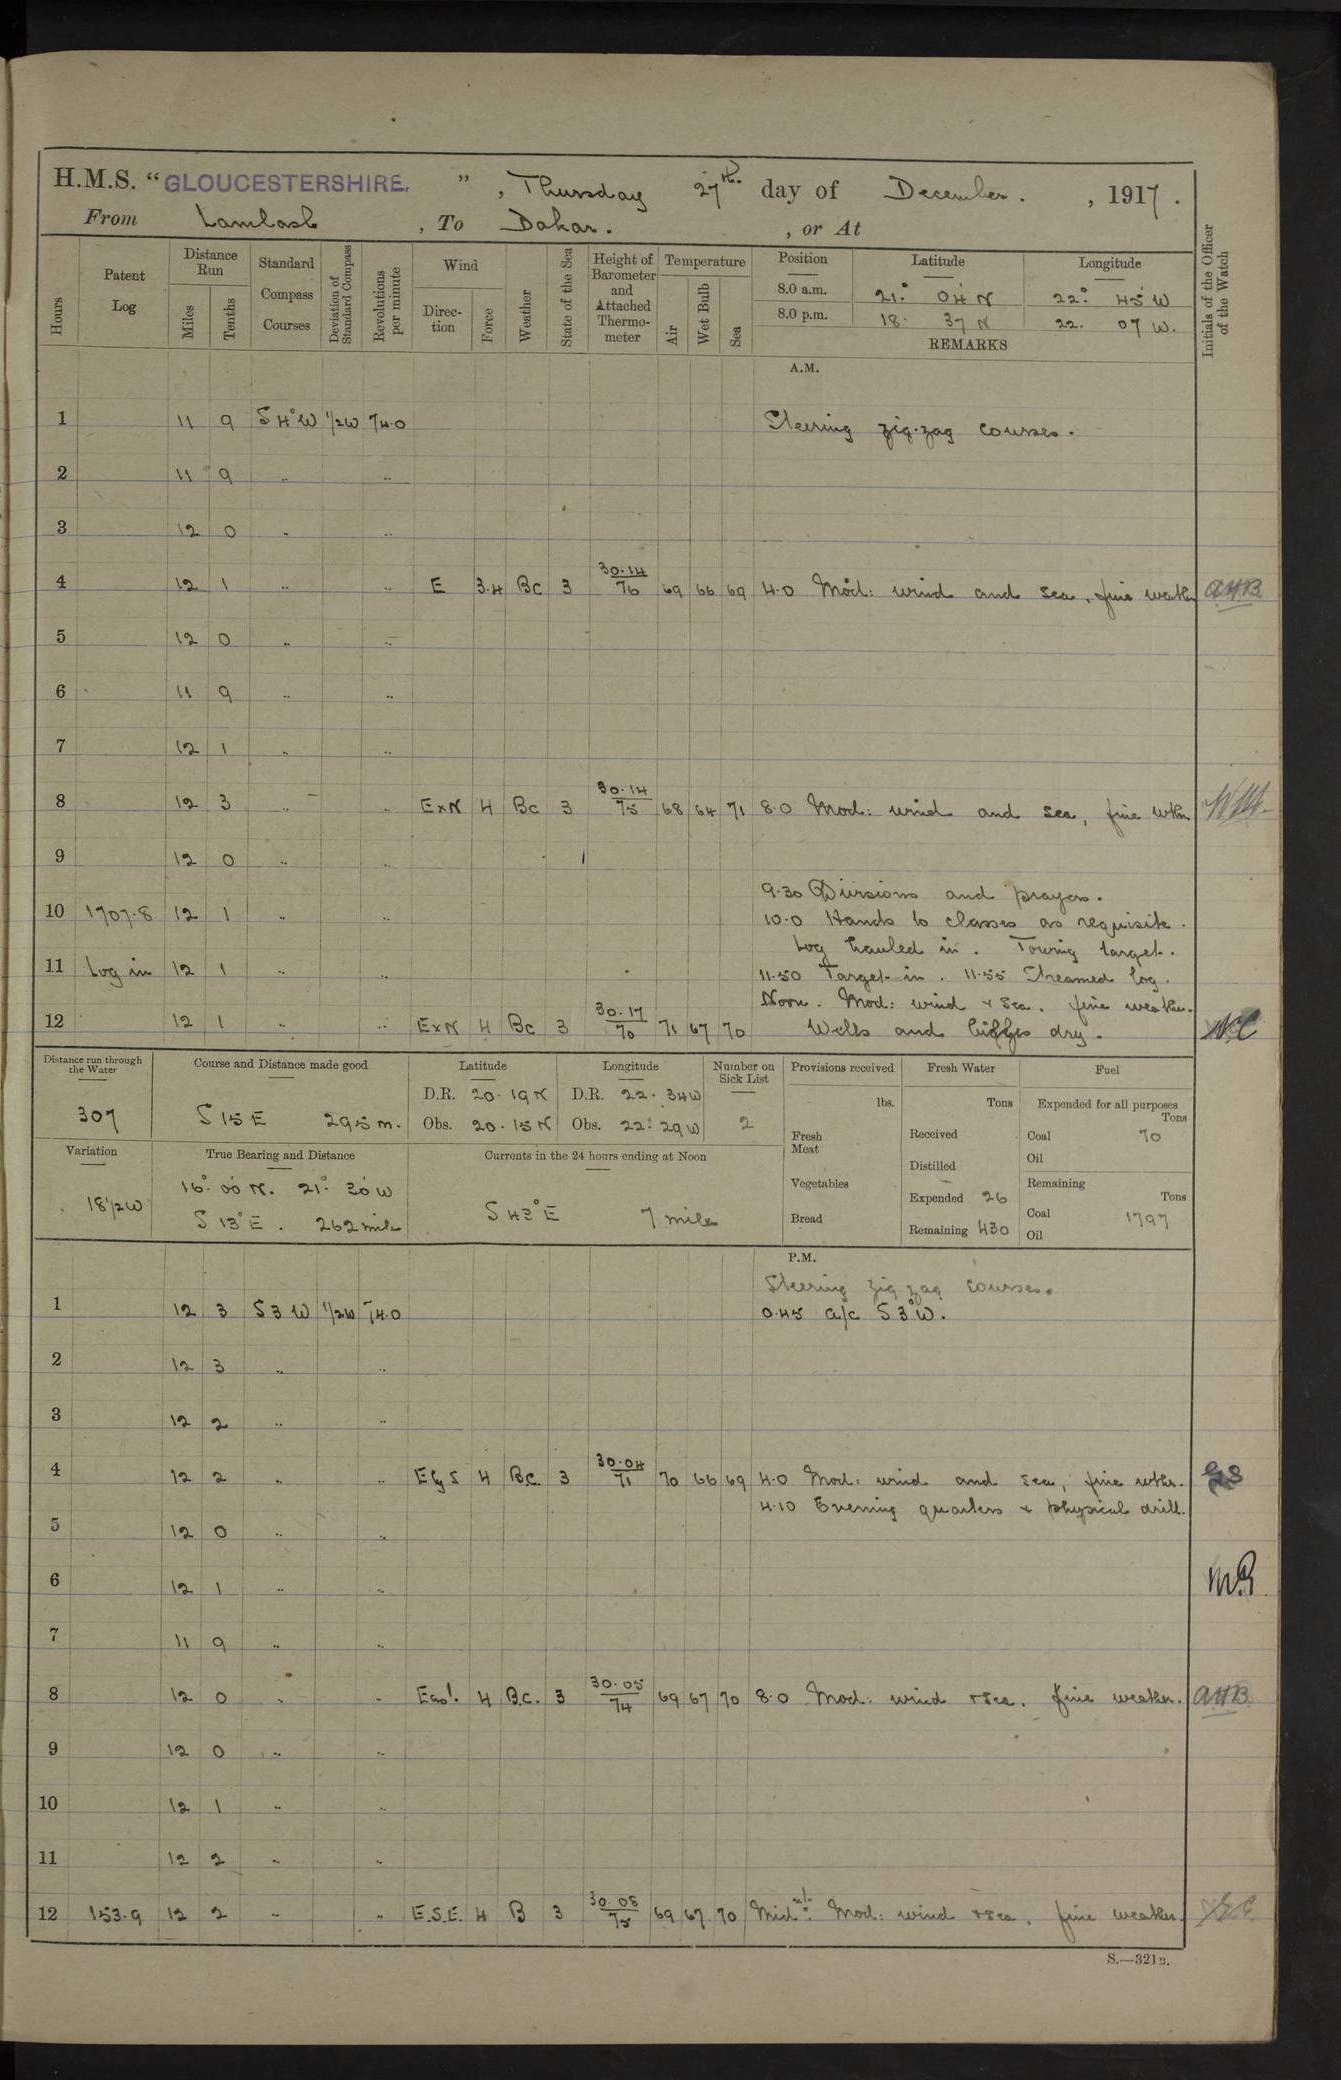 H.M.S. “GLOUCESTERSHIRE.” , Thursday 27th. day of December. , 1917.
From Lamlash , To Dakar. , or At
Hours
Patent Log
Distance Run
Miles
Tenths
Standard Compass Courses
Deviation of Standard Compass
Revolutions per minute
Wind
Direction
Force
Weather
State of the Sea
Height of Barometer and Attached Thermometer
Temperature
Air
Wet Bulb
Sea
Position Latitude Longitude
8.0 a.m. 21.° 04' N 22.° 45' W
8.0 p.m. 18. 37 N 22. 07 W.
REMARKS
Initials of the Officer of the Watch
A.M.
1 11 9 S 4° W 1/2W 74.0 Steering zig-zag courses.
2 11 9 .. ..
3 12 0 .. ..
4 12 1 .. .. E 3.4 Bc 3 30.14/76 69 66 69 4.0 Mod: wind and sea, fine weather A.H.B.
5 12 0 .. ..
6 11 9 .. ..
7 12 1 .. ..
8 12 3 .. .. ExN 4 Bc 3 30.14/75 68 64 71 8.0 Mod: wind and sea, fine wthr
9 12 0 .. ..
9.30 Divisions and prayers.
10 1707.8 12 1 .. .. 10.0 Hands to classes as requisite.
Log hauled in. Towing target.
11 Log in 12 1 .. .. 11.50 Target in. 11.55 Streamed log.
Noon. Mod: wind & sea. fine weather.
12 12 1 .. .. ExN 4 Bc 3 30.17/70 71 67 70 Wells and bilges dry.
Distance run through the Water
307
Course and Distance made good
S 15 E 295 m.
Latitude
D.R. 20. 19 N
Obs. 20. 15 N
Longitude
D.R. 22. 34 W
Obs. 22. 29 W
Number on Sick List
2
Variation
18 1/2 W
True Bearing and Distance
16° 00' N. 21° 30' W
S 13° E. 262 mile
Currents in the 24 hours ending at Noon
S 43° E 7 mile
Provisions received
lbs.
Fresh Meat
Vegetables
Bread
Fresh Water
Tons
Received
Distilled
Expended 26
Remaining 430
Fuel
Expended for all purposes
Tons
Coal 70
Oil
Remaining
Tons
Coal 1797
Oil
P.M.
Steering zig zag courses.
1 12 3 S 3 W 1/2W 74.0 0.45 a/c S 3° W.
2 12 3 .. ..
3 12 2 .. ..
4 12 2 .. .. E by S 4 B.C. 3 30.04/71 70 66 69 4.0 Mod: wind and sea, fine wthr.
4.10 Evening quarters & physical drill.
5 12 0 .. ..
6 12 1 .. ..
7 11 9 .. ..
8 12 0 .. .. East. 4 B.C. 3 30.05/74 69 67 70 8.0 Mod: wind & sea. fine weather. A.H.B.
9 12 0 .. ..
10 12 1 .. ..
11 12 2 .. ..
12 153.9 12 2 .. .. E.S.E. 4 B 3 30.08/75 69 67 70 Midnt: Mod: wind & sea, fine weather.
S.—321B.